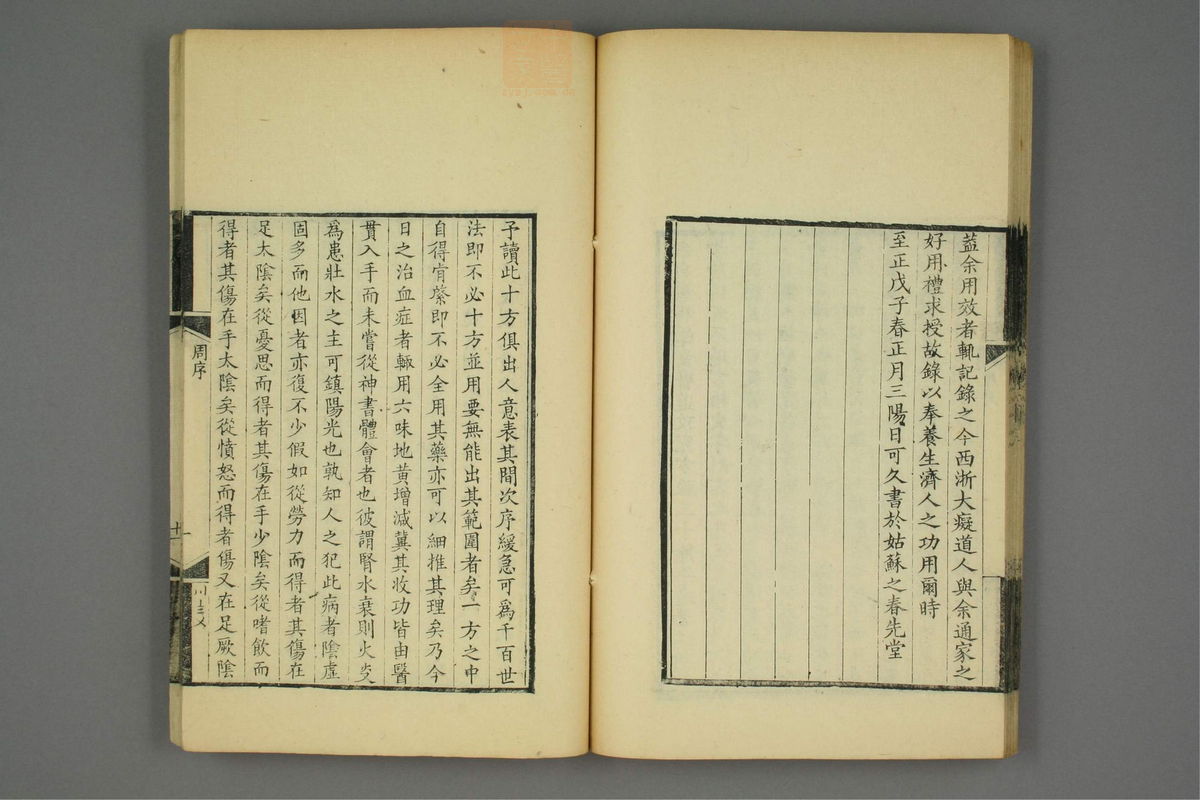 葢余用效者輒記錄之今西浙大癡道人與余通家之
好用禮求授故錄以奉養生濟人之功用爾時
至正戊子春正月三陽日可久書於姑蘇之春先堂
予讀此十方俱出人意表其間次序緩急可爲千百世
法即不必十方並用要無能出其範圍者矣一方之中
自得肯綮即不必全用其藥亦可以細推其理矣乃今
日之治血症者輙用六味地黃增減冀其收功皆由醫
貫入手而未嘗從神書體會者也彼謂腎水衰則火炎
爲患壯水之主可鎮陽光也孰知人之犯此病者陰虛
固多而他因者亦復不少假如從勞力而得者其傷在
足太陰矣從憂思而得者其傷在手少陰矣從嗜飲而
得者其傷在手太陰矣從憤怒而得者傷又在足厥陰
周序
十一